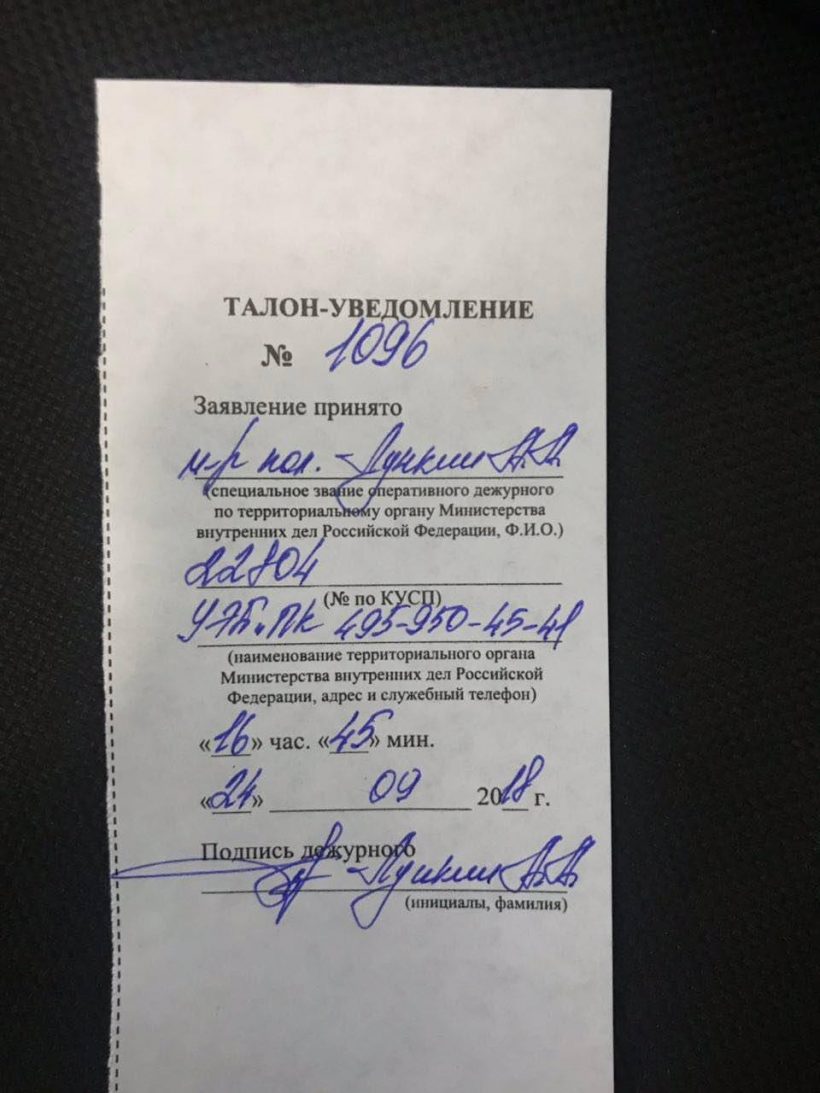 ТАЛОН-УВЕДОМЛЕНИЕ
№ 1096
Заявление принято
м-р пол. - А.А.
(специальное звание оперативного дежурного
по территориальному органу Министерства
внутренних дел Российской Федерации, Ф.И.О.)
22804
(№ по КУСП)
УЭБиПК 495-950-45-41
(наименование территориального органа
Министерства внутренних дел Российской
Федерации, адрес и служебный телефон)
«16» час. «45» мин.
«24» 09 2018 г.
Подпись дежурного
А.А.
(инициалы, фамилия)